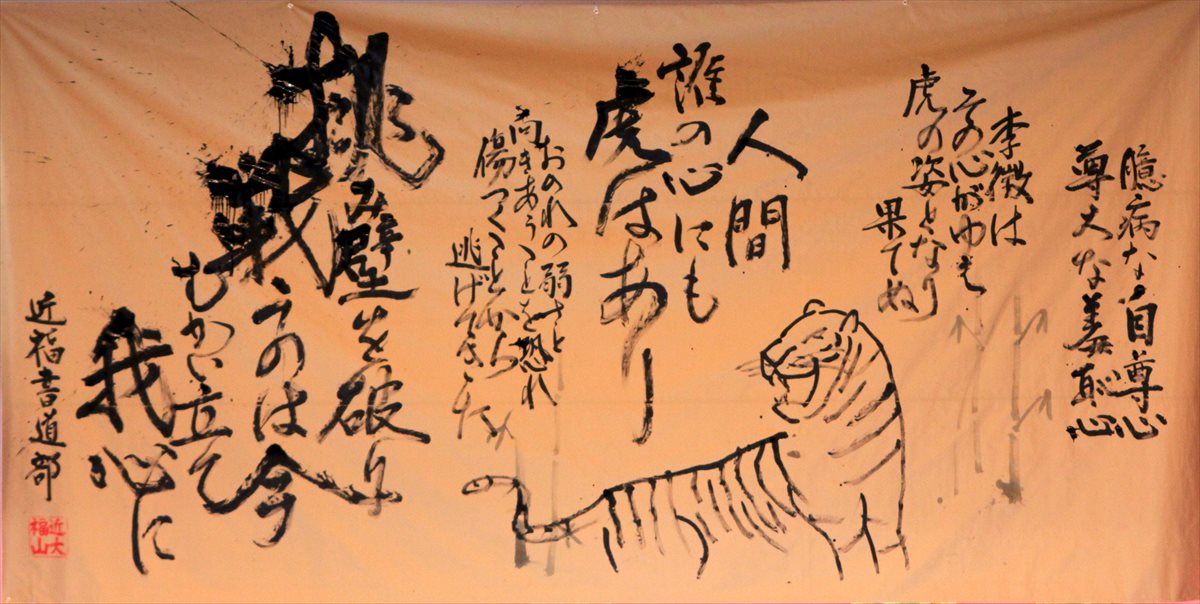 臆病な自尊心
尊大な羞恥心
李徴は
その心がゆえ
虎の姿となり
果てぬ
人間
誰の心にも
虎はあり
おのれの弱さと
向きあうことを恐れ
傷つくことから
逃げてきた
挑み壁を破り
戦うのは今
むかい立て
我心に
近福書道部
近大
福山